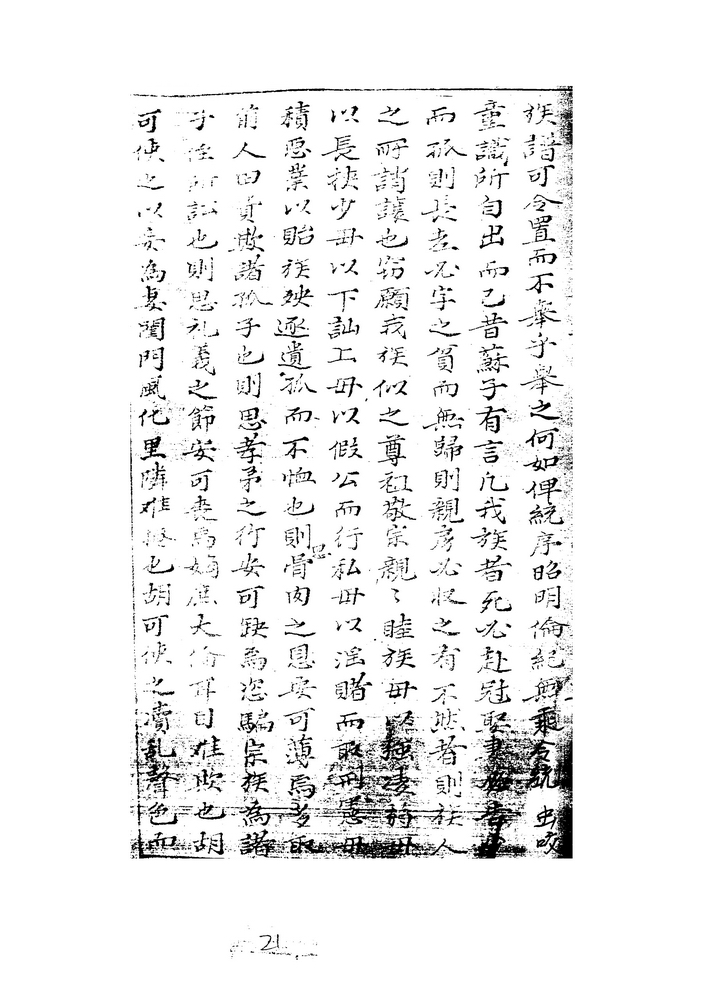 族譜可令置而不舉乎舉之何如俾統序昭明倫紀無乘吝統 虫咬
童識所自出而已昔蘇子有言凡我族昔死必赴冠娶必告
而孤則長者必字之貧而無歸則親房必收之有不然者則族人
之所誚讓也窃願我族似之尊祖敬宗親〻睦族毋以強凌弱毋
以長挾少毋以下訕上毋以假公而行私毋以淫賭而取刑憲毋
積惡業以貽族殃逐遺孤而不恤也則思骨肉之恩安可薄焉多取
前人田貲欺諸孤子也則思孝弟之行安可缺焉恣騙宗族為諸
子侄所訟也則思礼義之節安可喪焉嫡庶大倫耳目难欺也胡
可使之以妾為妻閨門風化里隣难掩也胡可使之瀆亂聲色而
21